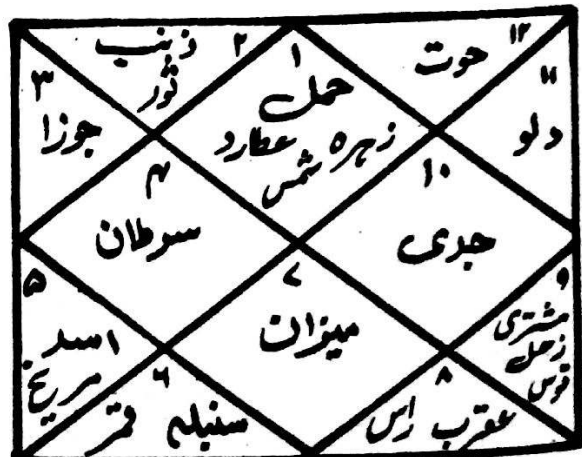 ۱
حمل
زہرہ عطارد
شمس
۲
ذنب
ثور
۳
جوزا
۴
سرطان
۵
اسد
مریخ
۶
سنبلہ قمر
۷
میزان
۸
عقرب راس
۹
مشتری
زحل
قوس
۱۰
جدی
۱۱
دلو
۱۲
حوت